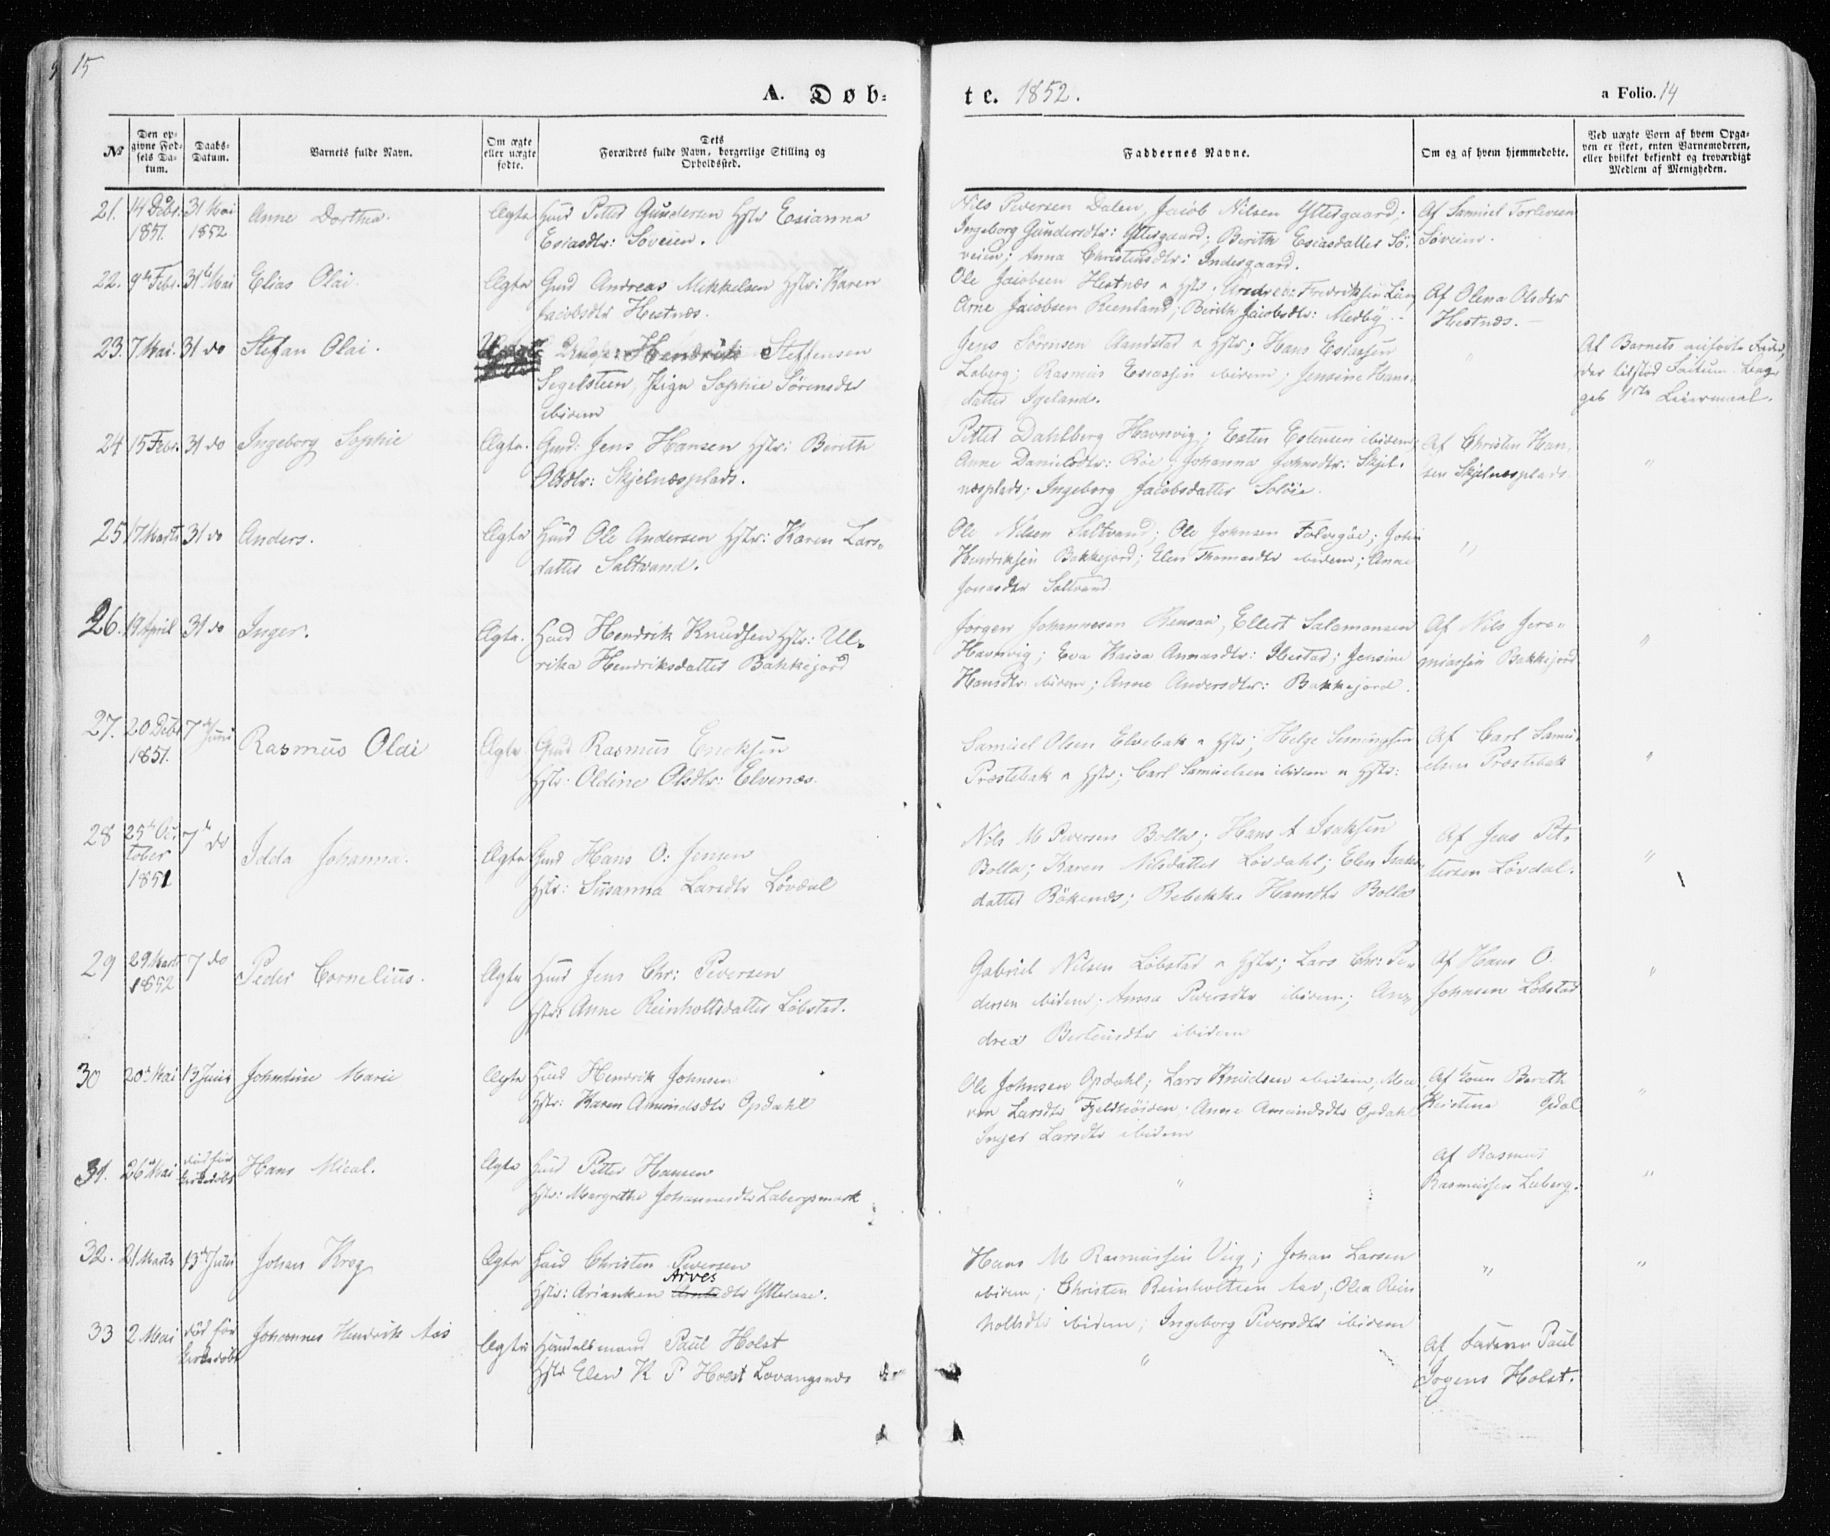 15
A. Døb-
te. 1852.
a Folio. 14
No
Den opgivne Fødsels Datum.
Daabs-Datum.
Barnets fulde Navn.
Om ægte eller uægte fødte.
Dets Forældres fulde Navn, borgerlige Stilling og Opholdssted.
Faddernes Navne.
Om og af hvem hjemmedøbte.
Ved uægte Børn af hvem Opgaven er skeet, enten Barnemoderen, eller hvilket bekjendt og troværdigt Medlem af Menigheden.
21. 14 Debr. 1851. 31 Mai 1852 Anne Dorthea. Ægte
Huusd Petter Gundersen Hstr Esianna
Esiasdtr: Søveien.
Nils Pedersen Dalen, Jacob Nilsen Yttergaard,
Ingeborg Gundersdtr: Yttergaard; Berith Esiasdatter Sø-
veien; Anna Christensdtr: Indergaard.
Af Samuel Torlevsen
Søveien.
22. 9de Febr. 31te Mai Elias Olai. Ægte
Gmd Andreas Mikkelsen Hstr: Karen
Jacobsdtr Hestnæs.
Ole Jacobsen Hestnæs & Hstr, Fredriksen
Arne Jacobsen Reenland; Berith Jacobsdtr: Medby
Af Olena Olsdtr
Hestnæs.
23. 7 Mai. 31 do Stefan Olai. Uægte
Hendrik Steffensen
Segelsteen, Pige Sophie Sørensdtr
ibidem
Jens Sørensen Sandstad & Hstr; Hans Esiassen
Laberg; Rasmus Esiassen ibidem; Jensine Hans-
datter Igeland.
Af Barnets
24 15 Febr. 31 do Ingeborg Sophie Ægte.
Gmd: Jens Hansen Hstr: Berith
Olsdtr: Skjelnæsplads.
Petter Dahlberg Havnvig; Esten Estensen ibidem;
Anne Danielsdtr: Røe; Johanna Johnsdtr: Skjel-
næsplads; Ingeborg Jacobsdatter Soløie.
Af Christen Han-
sen Skjelnæsplads
"
25 17 Marts 31 do Anders. Ægte
Huusd Ole Andersen Hstr: Karen Lars-
datter Saltvand.
Ole Nilsen Saltvand; Ole Johnsen; John
Hendriksen Bakkejord; Elen Thomasdtr ibidem; Anne
Jonasdtr Saltvand
"
26. 19 April 31 do Inger. Ægte.
Huusd Hendrik Knudsen Hstr: Ul-
rika Hendriksdatter Bakkejord
Jørgen Johannesen; Ellert Salamonsen
Havnvig; Eva Kaisa; Jensine
Hansdtr ibidem; Anne Andersdtr: Bakkejord.
Af Nils Jere-
miassen Bakkejord
"
27. 20 Debr 1851. 7de Juni Rasmus Olai Ægte.
Gmd Rasmus Enoksen
Hstr: Oldine Olsdtr: Elvenæs.
Samuel Olsen Elvebak & Hstr; Helge Simonssen
Præstebak & Hstr; Carl Samuelsen ibidem & Hstr:
Af Carl Samu-
elsen Præstebak
"
28 25de October 1851 7de do Idda Johanna. Ægte
Gmd Hans O: Jensen
Hstr: Susanna Larsdtr Løvdal
Nils M Pedersen Bolla; Hans A Isaksen
Bolla; Karen Nilsdatter Løvdahl; Elen Isaks-
datter Røkenes; Rebekka Hansdtr Bolla
Af Jens Pet-
tersen Løvdal.
"
29 29 Marts 1852 7 do Peder Cornelius. Ægte
Huusd Jens Chr: Pedersen
Hstr: Anne Reinholtsdatter Løbstad.
Gabriel Nilsen Løbstad & Hstr; Lars Chr: Pe-
dersen ibidem; Anna Pedersdtr ibidem; An-
drea Berteusdtr ibidem
Af Hans O:
Johnsen Løbstad
"
30 20de Mai 13 Juni Johndine Marie Ægte
Huusd Hendrik Johnsen
Hstr: Karen Amundsdtr Opdahl
Ole Johnsen Opdahl; Lars Knudsen ibidem; Ma-
ren Larsdtr; Anne Amundsdtr Opdahl
Inger Larsdtr ibidem
Af Konen Bereth
Kristina Opdal
"
31. 26 Mai død før kirkedøbt Hans Mical. Ægte
Huusd Petter Hansen
Hstr: Margrethe Johannesdtr Labergsmark
"
Af Rasmus
Rasmussen Laberg.
"
32. 21 Marts 13de Juni Johan Krog Ægte
Huusd Christen Pedersen
Arves
Hstr: Arianken dtr Ytteraae.
Hans M Rasmussen Viig; Johan Larsen
ibidem; Christen Reinholtsen Aae; Olea Rein
holtsdtr ibidem; Ingeborg Pedersdtr ibidem
"
"
33 2 Mai død før kirkedøbt Johannes Hendrik Aas Ægte
Handelsmand Paul Holst
Hstr Elen K P Holst Lovangsnæs
"
Af Faderen Paul
Jogens Holst.